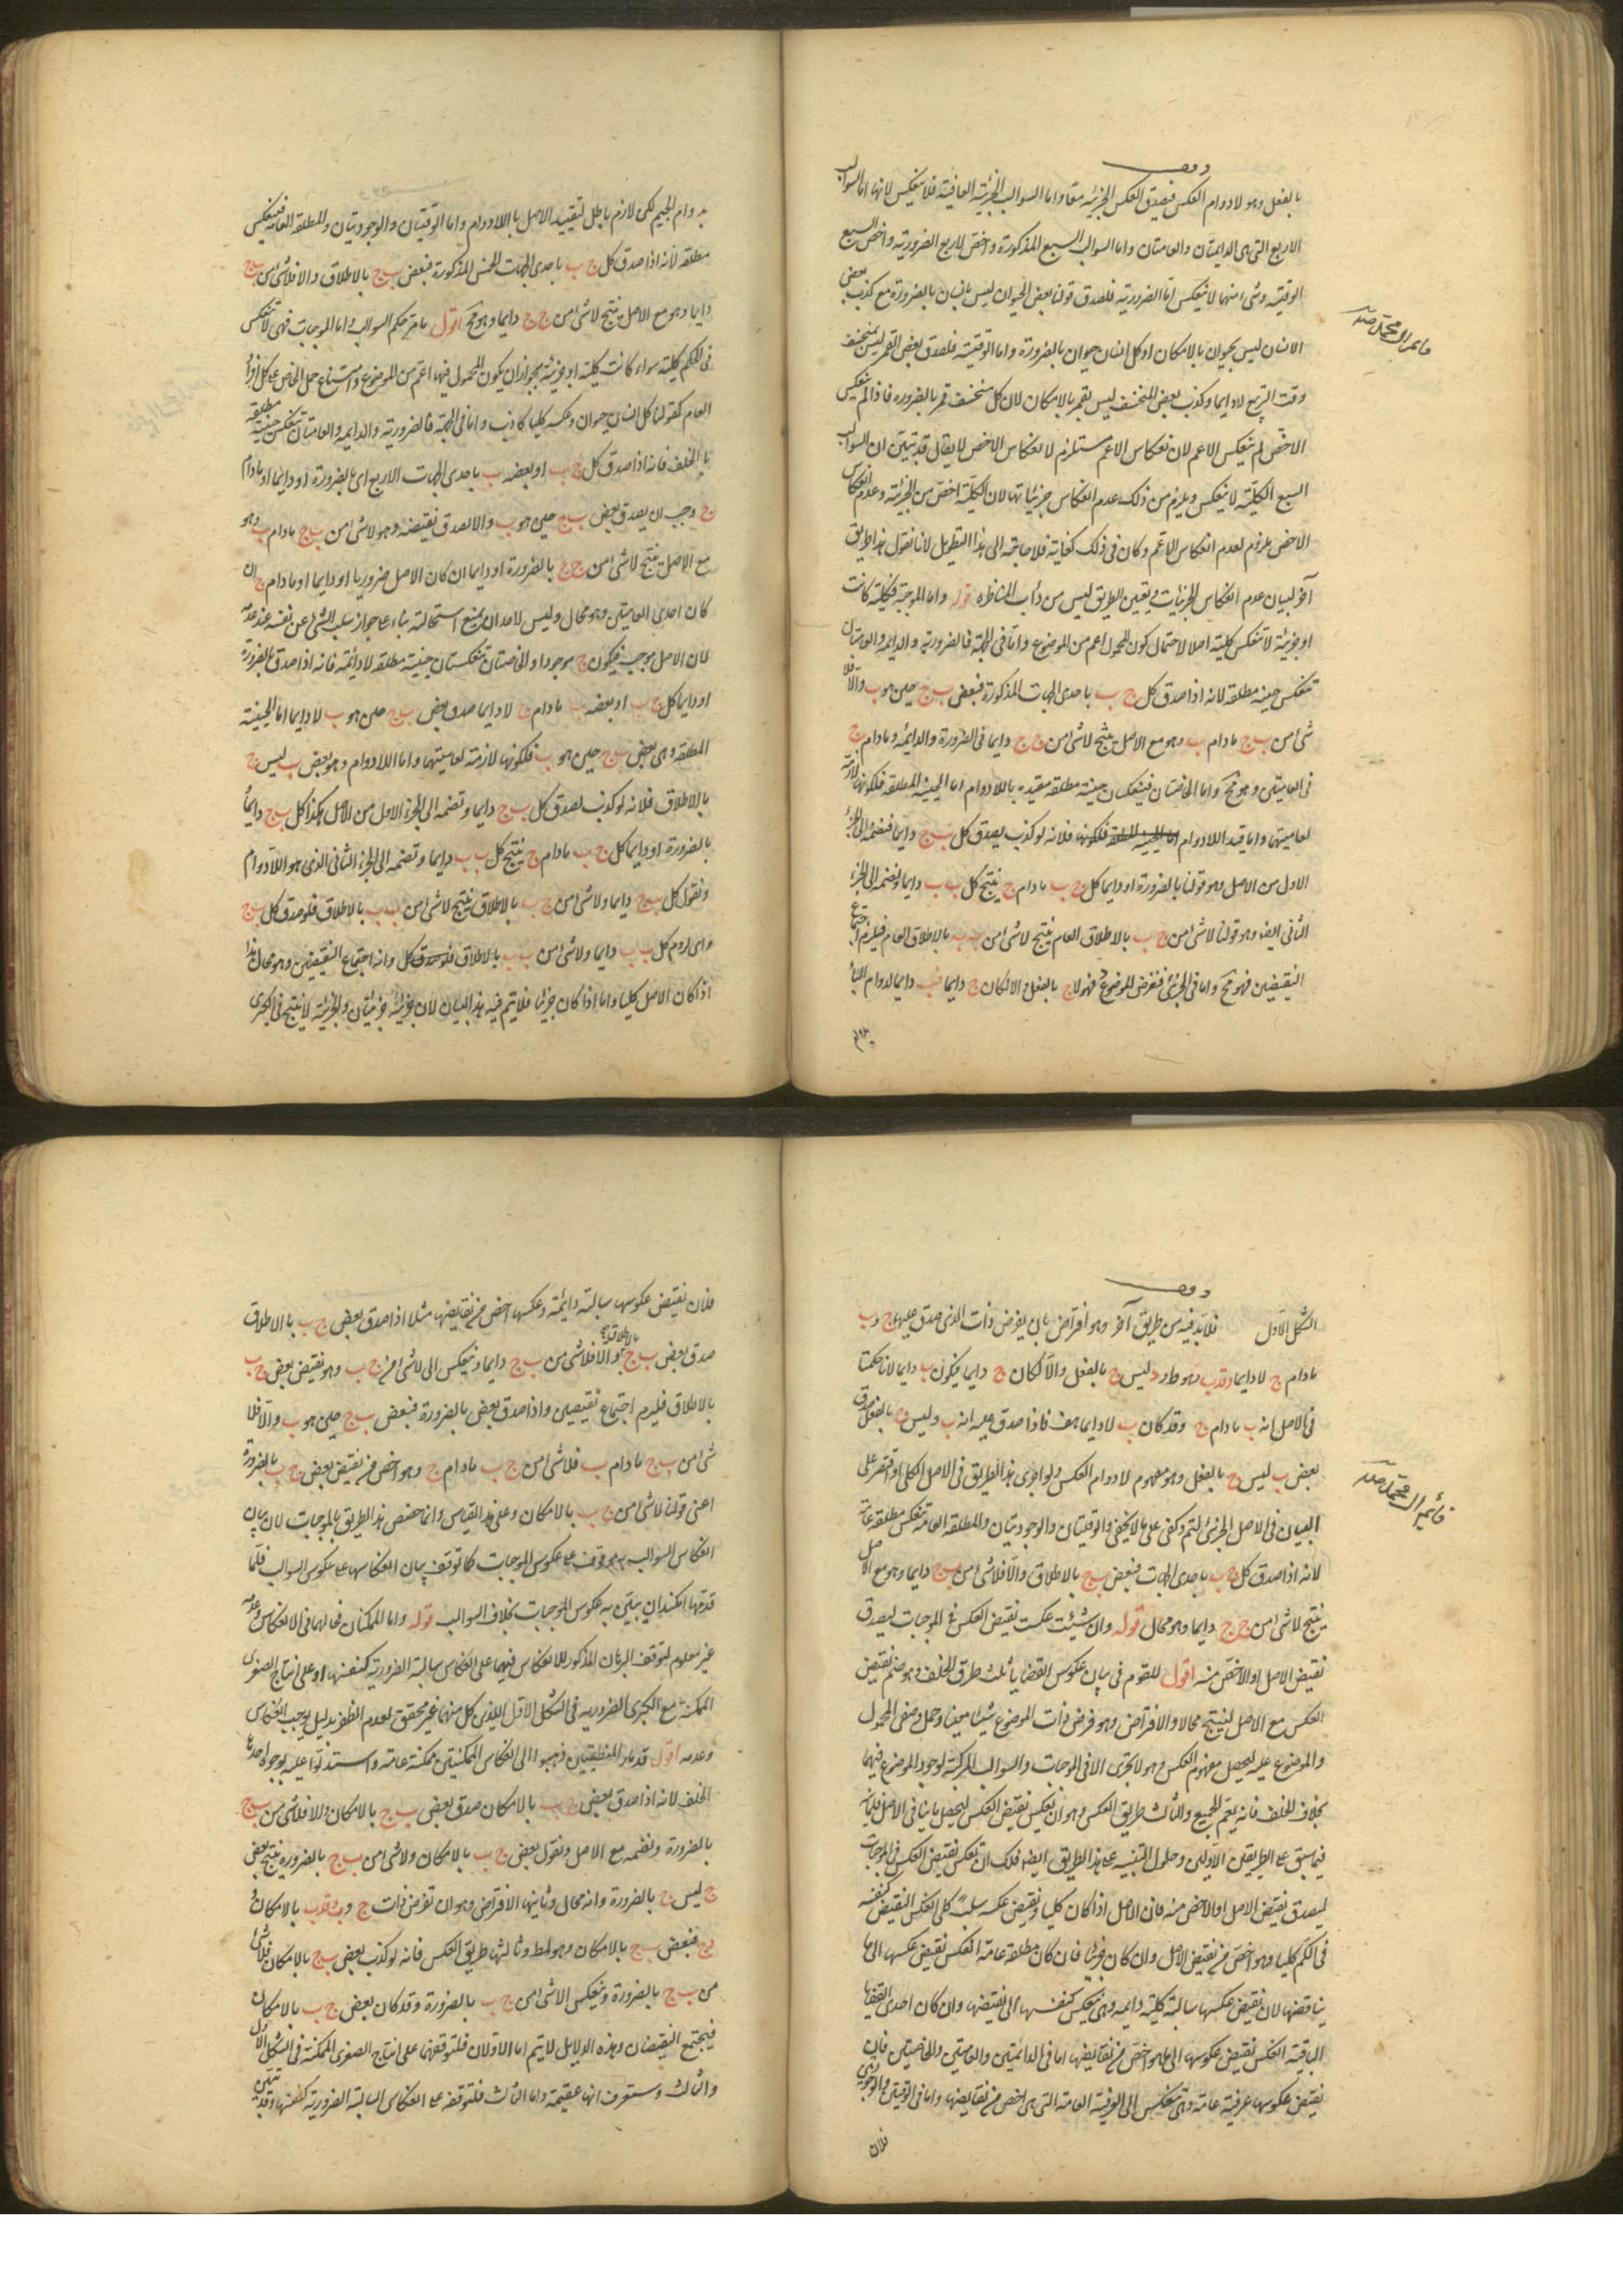 وقف
بالفعل وهو لادوام العكس فيصدق العكس الجزئية معا واما السوالب الجزئية الباقية فلا ينعكس لانها اما السوالب
الاربع التى هى الدايمتان والعامتان واما السوالب السبع المذكورة واخص الاربع الضرورية واخص السبع
الوقتية وشى منهما لا ينعكس اما الضرورية فلصدق قولنا بعض الحيوان ليس بانسان بالضرورة مع كذب بعض
الانسان ليس بحيوان بالامكان اذ كل انسان حيوان بالضرورة واما الوقتية فلصدق بعض القمر ليس بمنخسف
وقت التربيع لا دايما وكذب بعض المنخسف ليس بقمر بالامكان لان كل منخسف قمر بالضرورة فاذا لم ينعكس
الاخص لم ينعكس الاعم لان انعكاس الاعم مستلزم لانعكاس الاخص لا يقال قد تبين ان السوالب
السبع الكلية لا ينعكس ويلزم من ذلك عدم انعكاس جزئياتها لان الكلية اخص من الجزئية وعدم انعكاس
الاخص ملزوم لعدم انعكاس الاعم وكان فى ذلك كفاية فلا حاجة الى هذا التطويل لانا نقول هذا طريق
آخر لبيان عدم انعكاس الجزئيات وتعيين الطريق ليس من دأب المناظره قوله واما الموجبة فكلية كانت
او جزئية لا تنعكس كلية اصلا لاحتمال كون المحمول اعم من الموضوع واما فى الجهة فالضرورية والدايمه والعامتان
تنعكس حينية مطلقة لانه اذا صدق كل ج ب باحدى الجهات المذكورة فبعض ب ج حين هو ب والا فلا
شى من ب ج مادام ب وهو مع الاصل ينتج لا شى من ج ج دايما فى الضرورة والدائمه ومادام ج
فى العامتين وهو مح واما الخاصتان فينعكسان حينية مطلقة مقيدة باللادوام اما الحينية المطلقة فلكونها لازمة
لعاميتهما واما قيد اللادوام فلانه لو كذب يصدق كل ب ج دايما فنضمه الى الجزء
الاول من الاصل وهو قولنا بالضرورة او دايما كل ج ب مادام ج ينتج كل ب ب دايما ونضمه الى الجزء
الثانى ايضا وهو قولنا لا شى من ج ب بالاطلاق العام ينتج لا شى من ب ب بالاطلاق العام فيلزم اجتماع
النقيضين فهو مح واما فى الجزئى فنفرض الموضوع فهو لا ج بالفعل والا لكان ج دايما فب دايما لدوام الباء
بدوام الجيم لكن لازم باطل لتقييد الاصل باللادوام واما الوقتيان والوجوديتان والمطلقة العامه فينعكس
مطلقة لانه اذا صدق كل ج ب باحدى الجهات الخمس المذكورة فبعض ب ج بالاطلاق والا فلا شى من ب ج
دايما وهو مع الاصل ينتج لا شى من ج ج دايما وهو مح اقول ما مر حكم السوالب واما الموجبات فهى لا تنعكس
فى الكم كلية سواء كانت كلية او جزئية بجواز ان يكون المحمول فيها اعم من الموضوع وامتناع حمل الخاص على كل افراد
العام كقولنا كل انسان حيوان وعكسه كليا كاذب واما فى الجهة فالضرورية والدايمه والعامتان تنعكس حينية مطلقة
بالخلف فانه اذا صدق كل ج ب او بعضه ب باحدى الجهات الاربع اى بالضرورة او دايما او مادام
ج وجب ان يصدق بعض ب ج حين هو ب والا لصدق نقيضه وهو لا شى من ب ج مادام ب وهو
مع الاصل ينتج لا شى من ج ج بالضرورة او دايما ان كان الاصل ضروريا او دايما او مادام ج ان
كان احدى العامتين وهو محال وليس لاحد ان يمنع استحالته بناء على جواز سلب الشى عن نفسه عند عدمه
لان الاصل موجب فيكون ج موجودا والخاصتان تنعكستان حينية مطلقه لادائمة فانه اذا صدق بالضرورة
او دايما كل ج ب او بعضه ب مادام ج لا دايما صدق بعض ب ج حين هو ب لا دايما اما الحينية
المطلقه وهى بعض ب ج حين هو ب فلكونها لازمة لعاميتهما واما اللادوام وهو بعض ب ليس ج
بالاطلاق فلانه لو كذب لصدق كل ب ج دايما ونضمه الى الجزء الاول من الاصل هكذا كل ب ج دايما
بالضرورة او دايما كل ج ب مادام ج ينتج كل ب ب دايما ونضمه الى الجزء الثانى الذى هو اللادوام
ونقول كل ب ج دايما ولا شى من ج ب بالاطلاق ينتج لا شى من ب ب بالاطلاق فلو صدق كل ب ج
دايما لزم كل ب ب دايما ولا شى من ب ب بالاطلاق وانه اجتماع النقيضين وهو محال هذا
اذا كان الاصل كليا واما اذا كان جزئيا فلا يتم فيه هذا البيان لان جزئية جزئيتان والجزئية لا ينتج فى كبرى
وقف
الشكل الاول فلابد فيه من طريق آخر وهو افتراض بان يفرض ذات الذى صدق عليه ج و ب
مادام ج لا دايما فدب وهو ظ ود ليس ج بالفعل والا لكان ج دايما فيكون ب دايما لانا حكمنا
فى الاصل انه ب مادام ج وقد كان ب لا دايما هف فاذا صدق عليه انه ب وليس ج بالفعل صدق
بعض ب ليس ج بالفعل وهو مفهوم لا دوام العكس ولو اجرى هذا الطريق فى الاصل الكلى او اقتصر على
البيان فى الاصل الجزئى لتم وكفى على ما لا يخفى والوقتيتان والوجوديتان والمطلقه العامة تنعكس مطلقة عامة
لانه اذا صدق كل ج ب باحدى الجهات فبعض ب ج بالاطلاق والا فلا شى من ب ج دايما وهو مع الاصل
ينتج لا شى من ج ج دايما وهو محال قوله وان شئت عكست نقيض العكس فى الموجبات ليصدق
نقيض الاصل او الاخص منه اقول للقوم فى بيان عكوس القضايا ثلث طرق الخلف وهو ضم نقيض
العكس مع الاصل لينتج محالا والافتراض وهو فرض ذات الموضوع شيئا معينا وحمل وصفى المحمول
والموضوع عليه ليحصل مفهوم العكس وهو لا يجرى الا فى الموجبات والسوالب المركبة لوجود الموضوع فيهما
بخلاف الخلف فانه يعم الجميع والثالث طريق العكس وهو ان يعكس نقيض العكس ليحصل ما ينافى الاصل فلما نبه
فيما سبق على الطريقين الاولين وحاول التنبيه على هذا الطريق ايضا فلك ان تعكس نقيض العكس فى الموجبات
ليصدق نقيض الاصل او الاخص منه فان الاصل اذا كان كليا ونقيض عكسه سلب كلى انعكس النقيض كنفسه
فى الكم كليا وهو اخص من نقيض الاصل وان كان جزئيا فان كان مطلقة عامة انعكس نقيض عكسها الى ما
يناقضها لان نقيض عكسها سالبة كلية دايمه وهى تنعكس كنفسها الى نقيضها وان كان احدى القضايا
الباقية انعكس نقيض عكوسها الى ما هو اخص من نقايضها اما فى الدائمتين والعامتين والخاصتين فلان
نقيض عكوسها عرفية عامة وهى تنعكس الى العرفية العامه التى هى اخص من نقايضها واما فى الوقتيتين والوجوديتين
فلان
فلان نقيض عكوسها سالبة دائمة وعكسها اخص من نقايضها مثلا اذا صدق بعض ج ب بالاطلاق
صدق بعض ب ج بالاطلاق والا فلا شى من ب ج دايما وينعكس الى لا شى من ج ب وهو نقيض بعض ج ب
بالاطلاق فيلزم اجتماع نقيضين واذا صدق بعض بالضرورة فبعض ب ج حين هو ب والا فلا
شى من ب ج مادام ب فلا شى من ج ب مادام ج وهو اخص من نقيض بعض ج ب بالضرورة
اعنى قولنا لا شى من ج ب بالامكان وعلى هذا القياس وانما خصص هذا الطريق بالموجبات لان بيان
انعكاس السوالب موقوف على عكوس الموجبات كما توقف بيان انعكاسها على عكوس السوالب فلما
قدمها امكنه ان يبين به عكوس الموجبات بخلاف السوالب قوله واما الممكنتان فحالهما فى الانعكاس وعدمه
غير معلوم لتوقف البرهان المذكور للانعكاس فيهما على انعكاس سالبة الضرورية كنفسها او على انتاج الصغرى
الممكنة مع الكبرى الضروريه فى الشكل الاول اللذين كل منهما غير محقق لعدم الظفر بدليل يوجب انعكاس
وعدمه اقول قدماء المنطقيين ذهبوا الى انعكاس الممكنتين ممكنة عامة واستدلوا عليه بوجوه احدها
الخلف لانه اذا صدق بعض ج ب بالامكان صدق بعض ب ج بالامكان والا فلا شى من ب ج
بالضرورة ونضمه مع الاصل ونقول بعض ج ب بالامكان ولا شى من ب ج بالضرورة ينتج بعض
ج ليس ج بالضرورة وانه محال وثانيها الافتراض وهو ان نفرض ذات ج و ب د فدب بالامكان و
دج فبعض ب ج بالامكان وهو المط وثالثها طريق العكس فانه لو كذب بعض ب ج بالامكان فلا شى
من ب ج بالضرورة وينعكس الى لا شى من ج ب بالضرورة وقد كان بعض ج ب بالامكان
فيجتمع النقيضان وهذه الدلايل لا يتم اما الاولان فلتوقفهما على انتاج الصغرى الممكنة فى الشكل الاول
والثالث وستعرف انها عقيمة واما الثالث فلتوقفه على انعكاس السالبة الضرورية كنفسها وقد تبين